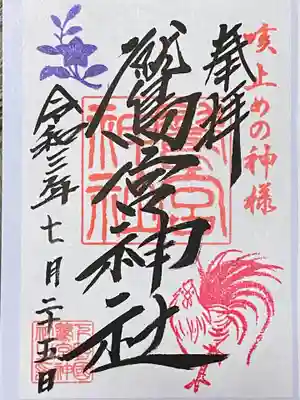 咳止めの神様
奉拝
鷲宮神社
鷲宮
神社
令和三年七月二十五日